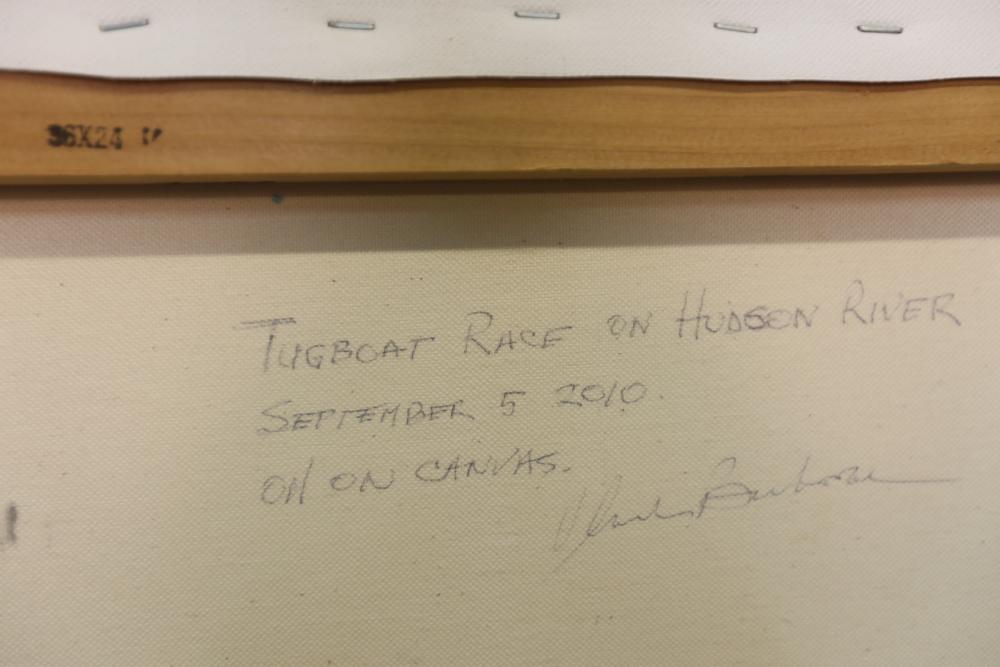 36X24
TUGBOAT RACE ON HUDSON RIVER
SEPTEMBER 5 2010.
OIL ON CANVAS.